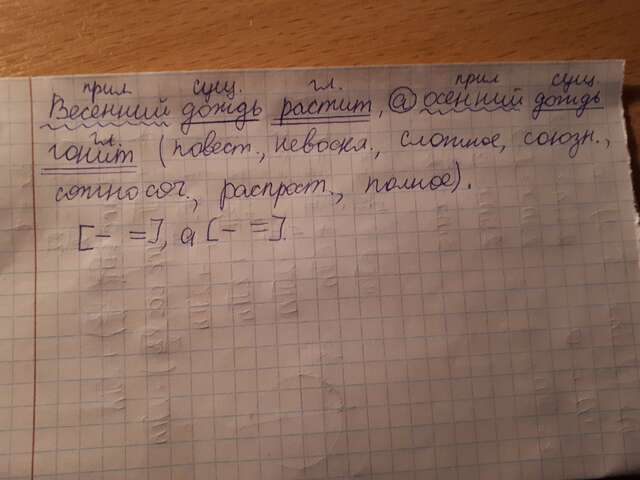 прил сущ. гл. прил сущ.
Весенний дождь растит, а осенний дождь
гл.
гонит (повест., невоскл., сложное, союзн.,
сложносоч., распрост., полное).
[– =], а [– =].